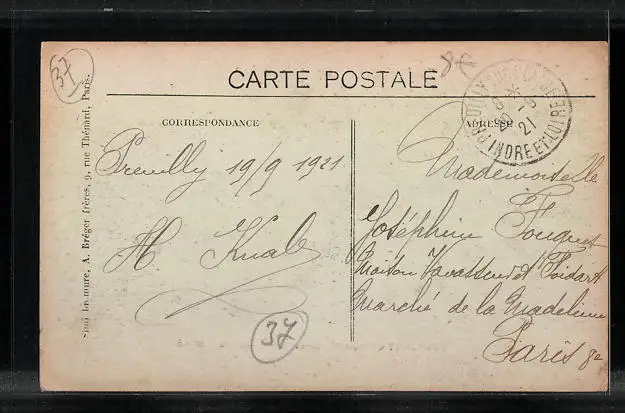 37
CARTE POSTALE
8 F
PREUILLY-SUR-CLAISE
* 19-9 21
INDRE ET LOIRE
CORRESPONDANCE
ADRESSE
Preuilly 19/9 1921
H Knab
Mademoiselle
Joséphine Fouquet
Maison et
Marché de la Madeleine
Paris 8e
37
Simi bromure, A. Bréger frères, 9, rue Thénard, Paris.